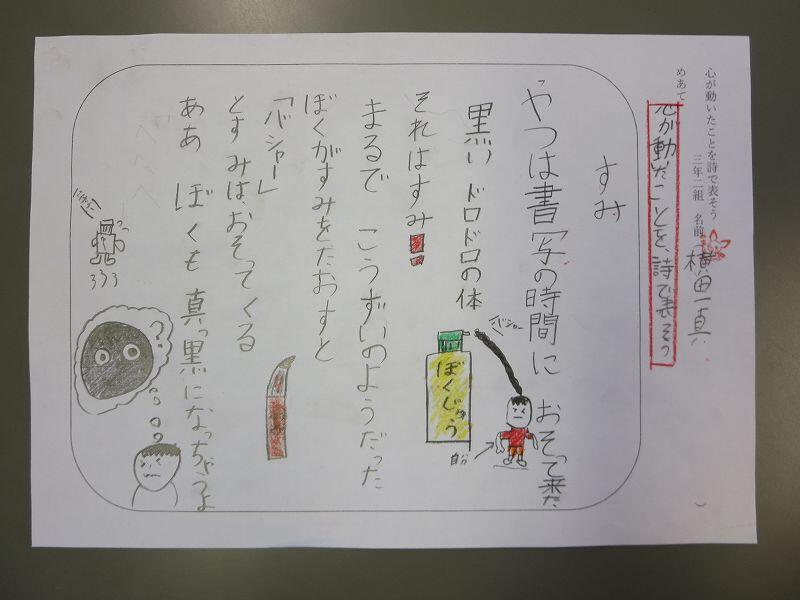 心が動いたことを詩で表そう
三年二組　名前　横田一真
めあて
心が動いたことを、詩で表そう
すみ
やつは書写の時間に　おそって来た
黒い　ドロドロの体
それはすみ
まるで　こうずいのようだった
ぼくがすみをたおすと
「バシャー」
とすみはおそってくる
ああ　ぼくも真っ黒になっちゃうよ
バシャー
ぼくじゅう
自分